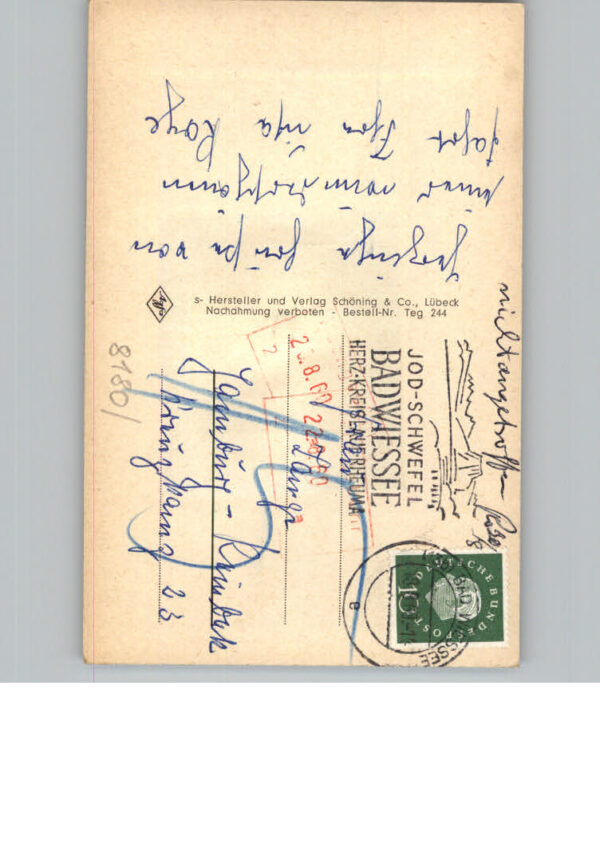 Herzliche Grüße von
einer wunderschönen
Fahrt Ihre
s- Hersteller und Verlag Schöning & Co., Lübeck
Nachahmung verboten - Bestell-Nr. Teg 244
Agfa
nicht angetroffen
JOD-SCHWEFEL
BAD WIESSEE
HERZ·KREISLAUF·RHEUMA
BAD WIESSEE
e
DEUTSCHE BUNDESPOST
10
22.8.60
2
Lange
Hamburg - Reinbek
23
8180/